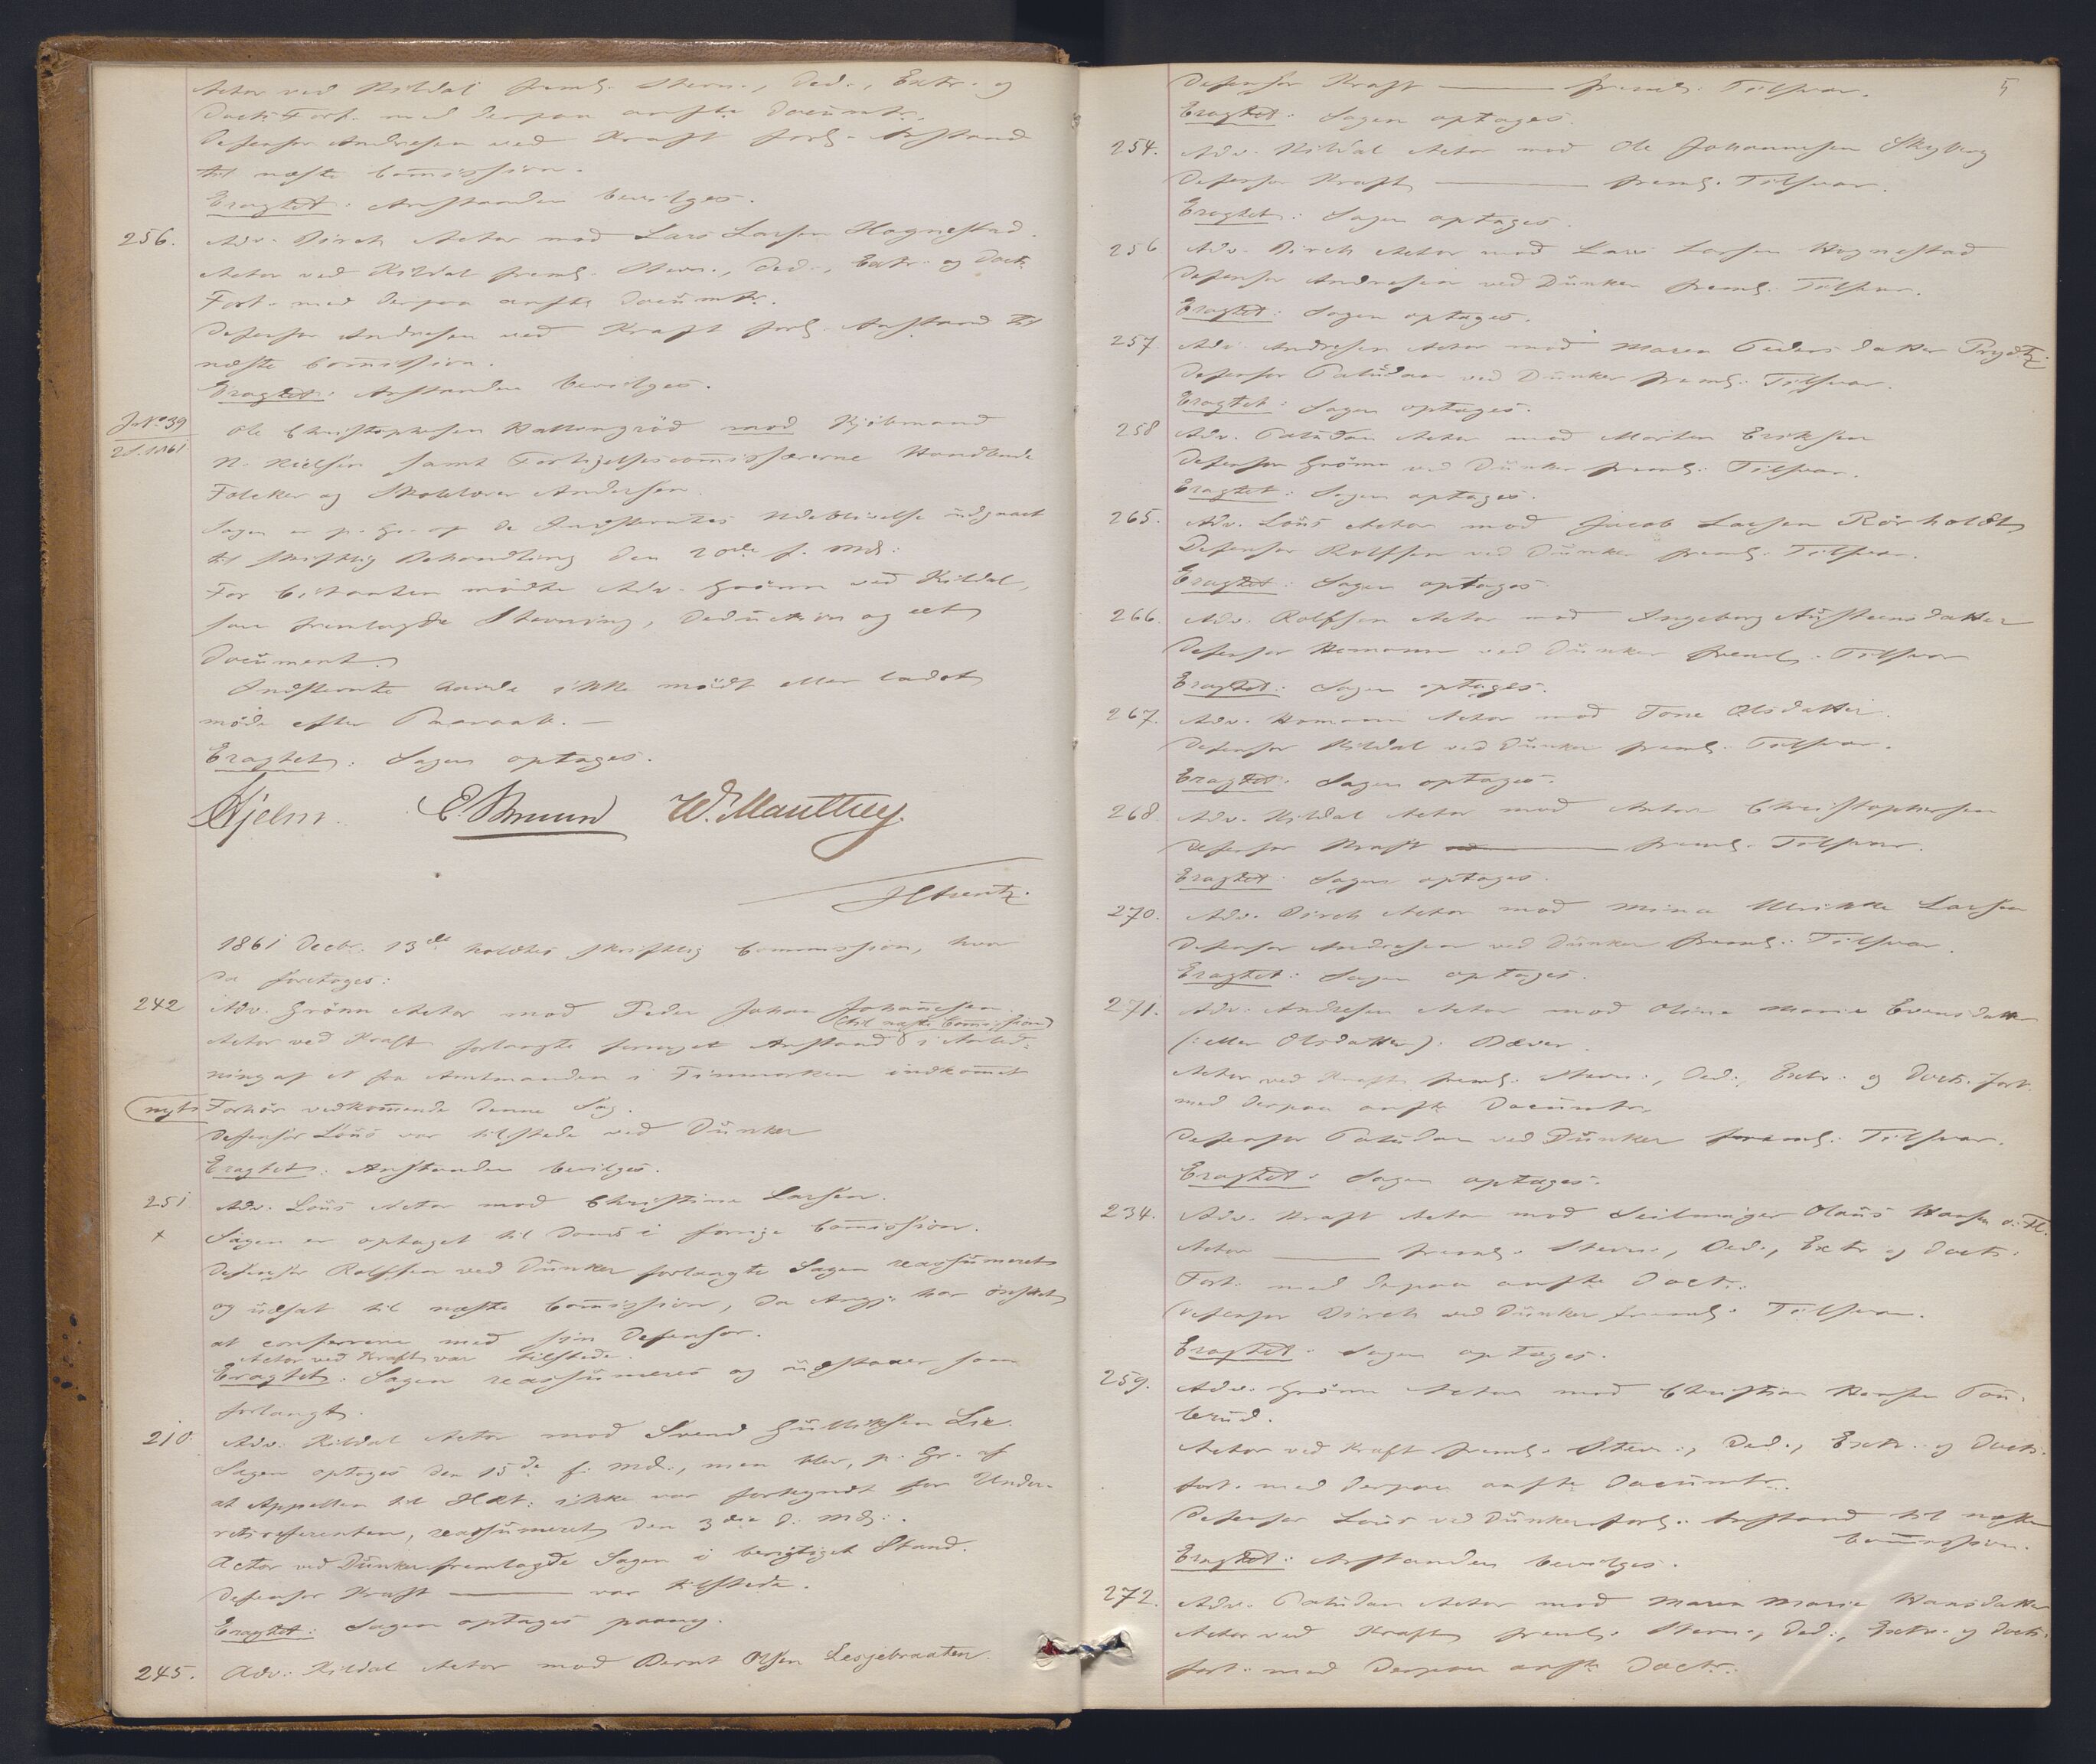 Actor ved Kildal freml. Stevn., Ded., Extr. og
Doct: Fort. med derpaa anfte Documtr.
Defensor Andresen ved Kraft forl. Anstand
til næste Comission.
Eragtet: Anstanden bevilges.
256. Adv. Birch Actor mod Lars Larsen Hagnestad.
Actor ved Kildal freml. Stevn., Ded., Extr. og Doct:
Fort. med derpaa anfte Documtr.
Defensor Andresen ved Kraft forl. Anstand til
næste Comission.
Eragtet: Anstanden bevilges.
J. No 39
Ole Christophersen mod Kjøbmand
2 S. 1861
N. Nielsen samt Forligelsescomissærerne Handlende
Følcker og Skolelærer Andersen.
Sagen er p. Gr. af de Indstevntes Udeblivelse udgaaet
til skriftlig Behandling den 20de f. Md:
For Citanten mødte Adv. Grönn ved Kildal,
som fremlagde Stevning, Deduction og eet
Document.
Indstevnte havde ikke mødt eller ladet
møde efter Paaraab. —
Eragtet: Sagen optages.
Hjelm. E. Bruun W. Manthey.
1861 Decbr. 13de holdtes skriftlig Commission, hvor
da foretoges:
242 Adv. Grönn Actor mod Peder Johan Johannesen.
(til næste Comission)
Actor ved Kraft forlangte fornyet Anstand i Anled-
ning af et fra Amtmanden i Finmarken indkomet
nyt Forhör vedkomende denne Sag.
Defensor Löus var tilstede ved Dunker
Eragtet: Anstanden bevilges.
251 Adv. Löus Actor mod Christine Larsen.
x Sagen er optaget til Doms i forrige Comission.
Defensor Rolfsen ved Dunker forlangte Sagen reassumeret
og udsat til næste Comission, da Angj. har önsket
at conferere med sin Defensor.
Actor ved Kraft var tilstede.
Eragtet: Sagen reassumeres og udstaaer som
forlangt.
210. Adv. Kildal Actor mod Svend Gulliksen Lie.
Sagen optoges den 15de f. Md., men blev, p. Gr. af
at Appellen til Hæt: ikke var forkyndt for Under-
retsreferenten, reassumeret den 3die d. Md:.
Actor ved Dunker fremlagde Sagen i berigtiget Stand.
Defensor Kraft ——— var tilstede.
Eragtet: Sagen optages paany.
245. Adv. Kildal Actor mod Bernt Olsen Lesjebraaten.
5
Defensor Kraft ——— freml. Tilsvar.
Eragtet: Sagen optages.
254. Adv. Kildal Actor mod Ole Johannesen Skyberg
Defensor Kraft ——— freml. Tilsvar.
Eragtet: Sagen optages.
256 Adv. Birch Actor mod Lars Larsen Hagnestad
Defensor Andresen ved Dunker freml. Tilsvar.
Eragtet: Sagen optages.
257. Adv. Andresen Actor mod Maren Pedersdatter Prydtz.
Defensor Paludan ved Dunker freml. Tilsvar.
Eragtet: Sagen optages.
258 Adv. Paludan Actor mod Morten Eriksen
Defensor Grönn ved Dunker freml. Tilsvar.
Eragtet: Sagen optages.
265. Adv. Löus Actor mod Jacob Larsen Rörholdt
Defensor Rolfsen ved Dunker freml. Tilsvar.
Eragtet: Sagen optages
266. Adv. Rolfsen Actor mod Ingeborg Austeensdatter
Defensor Homann ved Dunker freml. Tilsvar
Eragtet: Sagen optages.
267. Adv. Homann Actor mod Tone Olsdatter.
Defensor Kildal ved Dunker freml. Tilsvar.
Eragtet: Sagen optages.
268 Adv. Kildal Actor mod Anton Christophersen
Defensor Kraft ——— freml. Tilsvar.
Eragtet: Sagen optages.
270. Adv. Birch Actor mod Mina Ulrikke Larsen
Defensor Andresen ved Dunker freml. Tilsvar.
Eragtet: Sagen optages.
271. Adv. Andresen Actor mod Oline Marie Evensdatter
(: eller Olsdatter) Bæver.
Actor ved Kraft freml. Stevn., Ded., Extr. og Doct. fort.
med derpaa anfte Documtr.
Defensor Paludan ved Dunker freml. Tilsvar.
Eragtet: Sagen optages.
234. Adv. Kraft Actor mod Seilmager Olaus Hansen o. Fl.
Actor ——— freml. Stevn., Ded., Extr. og Doct.
Fort. med derpaa anfte Doct.
Defensor Birch ved Dunker freml. Tilsvar.
Eragtet: Sagen optages.
259. Adv. Grönn Actor mod Christian Hansen Tou-
brud.
Actor ved Kraft freml. Stevn., Ded., Extr. og Doct.
fort. med derpaa anfte Documtr.
Defensor Löus ved Dunker forl. Anstand til næste
Comission.
Eragtet: Anstanden bevilges.
272. Adv. Paludan Actor mod Maren Marie Hansdatter
Actor ved Kraft freml. Stevn., Ded., Extr. og Doct.
fort. med derpaa anfte Doctr.